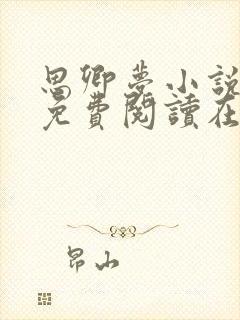 思卿梦小說
免費閱讀在
昂山